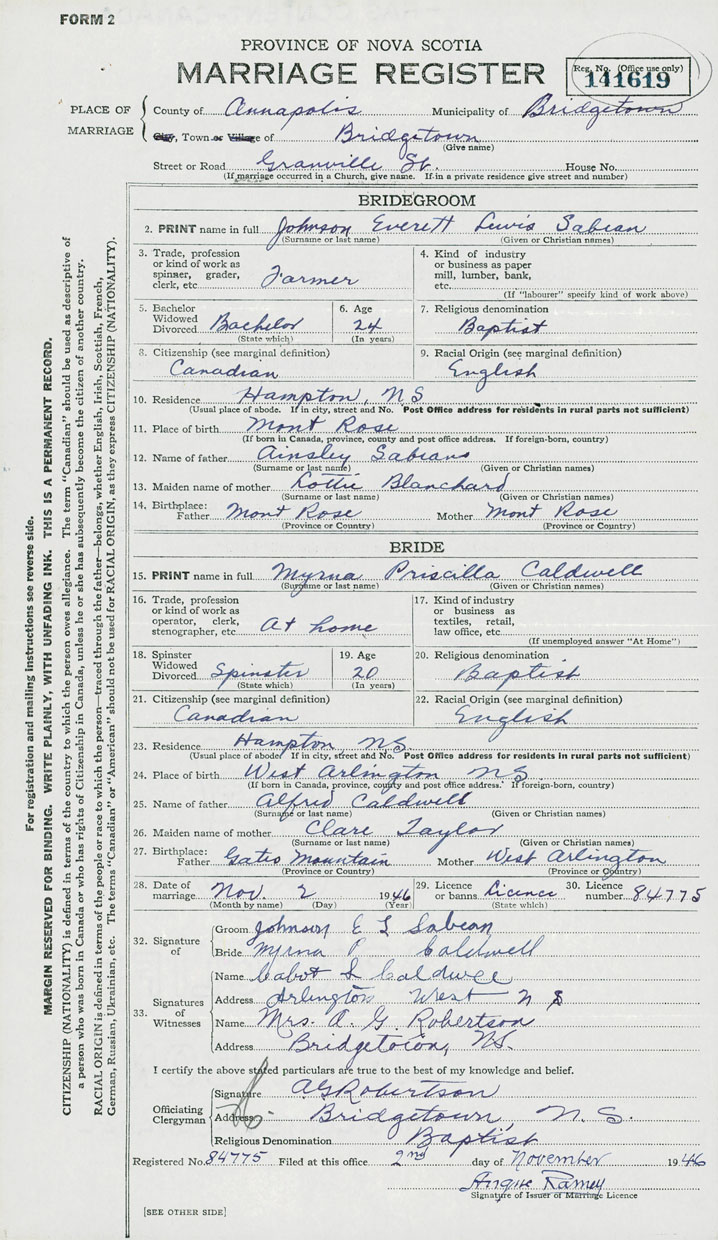 FORM 2
PROVINCE OF NOVA SCOTIA
MARRIAGE REGISTER
Reg. No. (Office use only)
141619
PLACE OF MARRIAGE
County of Annapolis Municipality of Bridgetown
City, Town or Village of Bridgetown
(Give name)
Street or Road Granville St. House No.
(If marriage occurred in a Church, give name. If in a private residence give street and number)
BRIDEGROOM
2. PRINT name in full Johnson Everett Lewis Sabean
(Surname or last name) (Given or Christian names)
3. Trade, profession or kind of work as spinner, grader, clerk, etc. Farmer
4. Kind of industry or business as paper mill, lumber, bank, etc.
(If "labourer" specify kind of work above)
5. Bachelor Widowed Divorced Bachelor
(State which)
6. Age 24
(In years)
7. Religious denomination
Baptist
8. Citizenship (see marginal definition)
Canadian
9. Racial Origin (see marginal definition)
English
10. Residence Hampton, NS
(Usual place of abode. If in city, street and No. Post Office address for residents in rural parts not sufficient)
11. Place of birth Mont Rose
(If born in Canada, province, county and post office address. If foreign-born, country)
12. Name of father Ainsley Sabians
(Surname or last name) (Given or Christian names)
13. Maiden name of mother Lottie Blanchard
(Surname or last name) (Given or Christian names)
14. Birthplace: Father Mont Rose Mother Mont Rose
(Province or Country) (Province or Country)
BRIDE
15. PRINT name in full Myrna Priscilla Caldwell
(Surname or last name) (Given or Christian names)
16. Trade, profession or kind of work as operator, clerk, stenographer, etc. At home
17. Kind of industry or business as textiles, retail, law office, etc.
(If unemployed answer "At Home")
18. Spinster Widowed Divorced Spinster
(State which)
19. Age 20
(In years)
20. Religious denomination
Baptist
21. Citizenship (see marginal definition)
Canadian
22. Racial Origin (see marginal definition)
English
23. Residence Hampton NS.
(Usual place of abode. If in city, street and No. Post Office address for residents in rural parts not sufficient)
24. Place of birth West Arlington NS.
(If born in Canada, province, county and post office address. If foreign-born, country)
25. Name of father Alfred Caldwell
(Surname or last name) (Given or Christian names)
26. Maiden name of mother Clare Taylor
(Surname or last name) (Given or Christian names)
27. Birthplace: Father Gates Mountain Mother West Arlington
(Province or Country) (Province or Country)
28. Date of marriage Nov. 2 1946
(Month by name) (Day) (Year)
29. Licence or banns Licence
(State which)
30. Licence number 84775
32. Signature of
Groom Johnson E L Sabean
Bride Myrna P Caldwell
33. Signatures of Witnesses
Name Cabot L Caldwell
Address Arlington West N S
Name Mrs. A. G. Robertson
Address Bridgetown, NS.
I certify the above stated particulars are true to the best of my knowledge and belief.
Officiating Clergyman
Signature AG Robertson
Address Bridgetown, N. S.
Religious Denomination Baptist
Registered No. 84775 Filed at this office 2nd day of November 1946
Angus Ramey
Signature of Issuer of Marriage Licence
[SEE OTHER SIDE]
For registration and mailing instructions see reverse side.
MARGIN RESERVED FOR BINDING. WRITE PLAINLY, WITH UNFADING INK. THIS IS A PERMANENT RECORD.
CITIZENSHIP (NATIONALITY) is defined in terms of the country to which the person owes allegiance. The term "Canadian" should be used as descriptive of
a person who was born in Canada or who has rights of Citizenship in Canada, unless he or she has subsequently become the citizen of another country.
RACIAL ORIGIN is defined in terms of the people or race to which the person—traced through the father—belongs, whether English, Irish, Scottish, French,
German, Russian, Ukrainian, etc. The terms "Canadian" or "American" should not be used for RACIAL ORIGIN, as they express CITIZENSHIP (NATIONALITY).